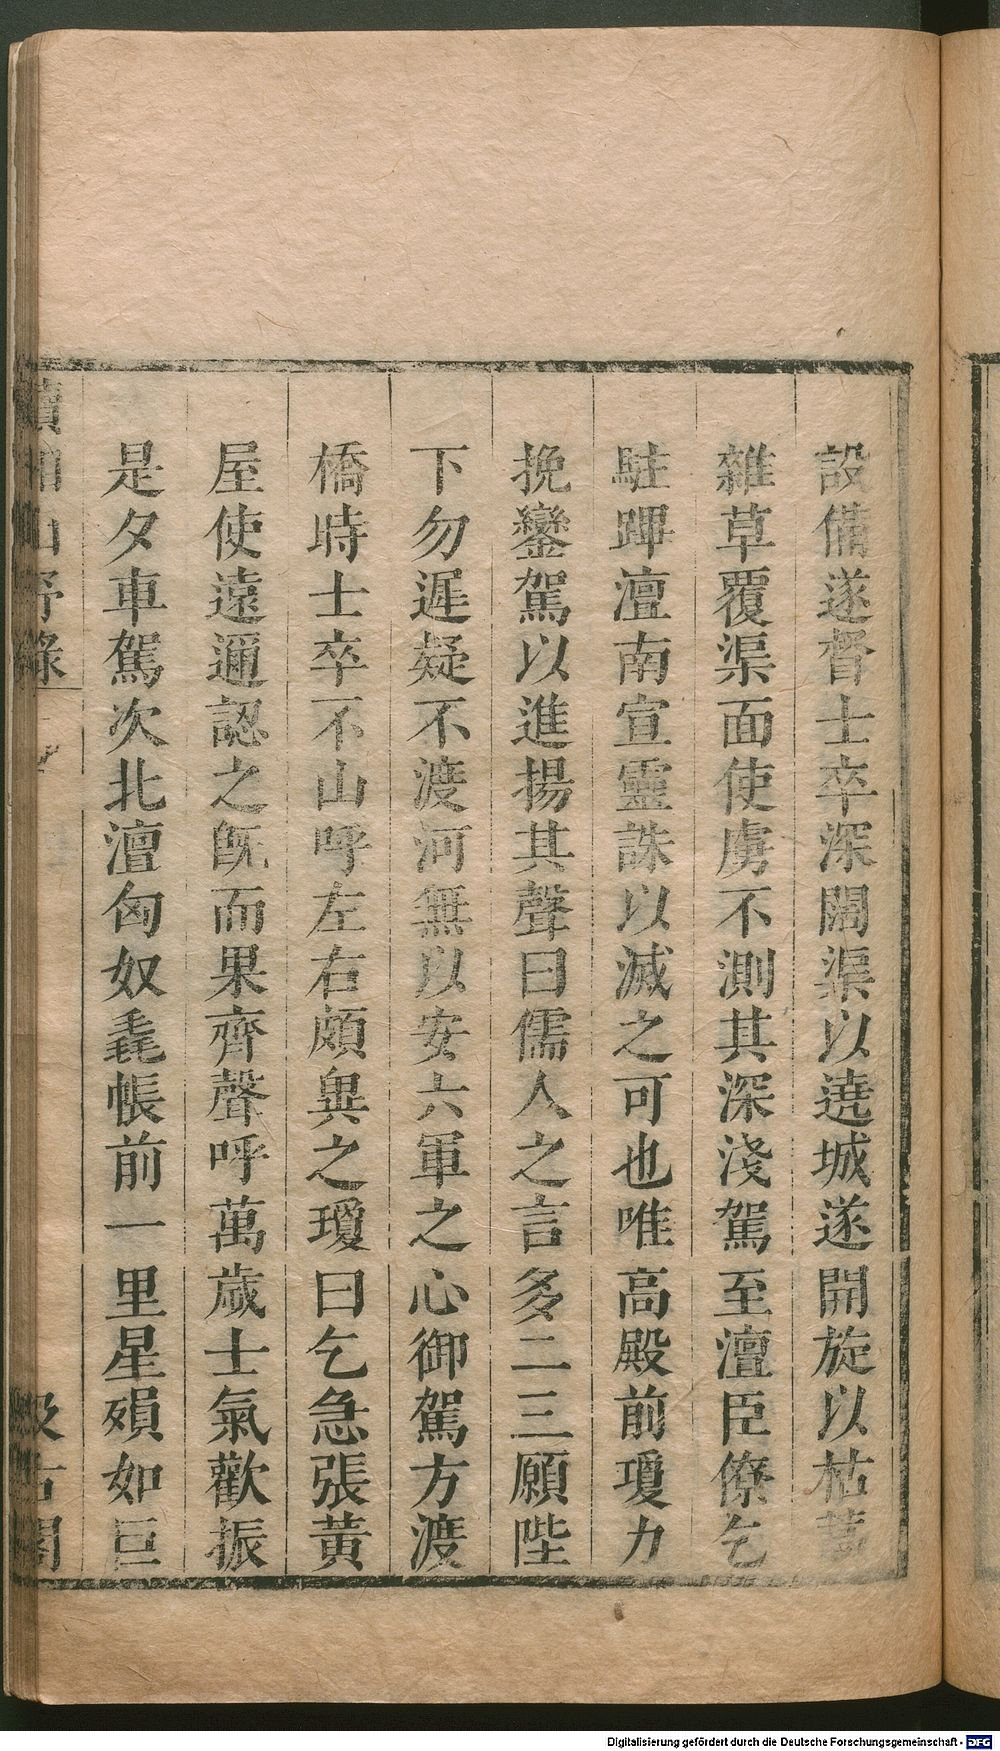 設備遂督士卒深闊渠以遶城遂開旋以枯
雜草覆渠面使虜不測其深淺駕至澶臣僚乞
駐蹕澶南宣靈誅以滅之可也唯高殿前瓊力
挽鑾駕以進揚其聲曰儒人之言多二三願陛
下勿遲疑不渡河無以安六軍之心御駕方渡
橋時士卒不山呼左右頗異之瓊曰乞急張黃
屋使遠邇認之旣而果齊聲呼萬歲士氣歡振
是夕車駕次北澶匈奴毳帳前一里星殞如巨
續湘山野錄
汲古閣
Digitalisierung gefördert durch die Deutsche Forschungsgemeinschaft - DFG